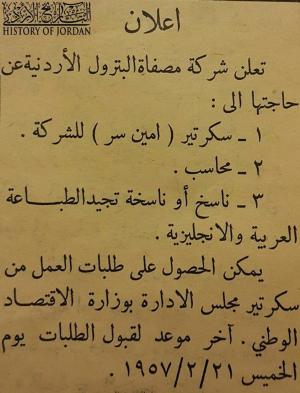 HISTORY OF JORDAN
اعلان
تعلن شركة مصفاة البترول الأردنية عن
حاجتها الى :
١ ـ سكرتير ( امين سر ) للشركة .
٢ ـ محاسب .
٣ ـ ناسخ أو ناسخة تجيد الطباعة
العربية والانجليزية .
يمكن الحصول على طلبات العمل من
سكرتير مجلس الادارة بوزارة الاقتصاد
الوطني . آخر موعد لقبول الطلبات يوم
الخميس ١٩٥٧/٢/٢١ .